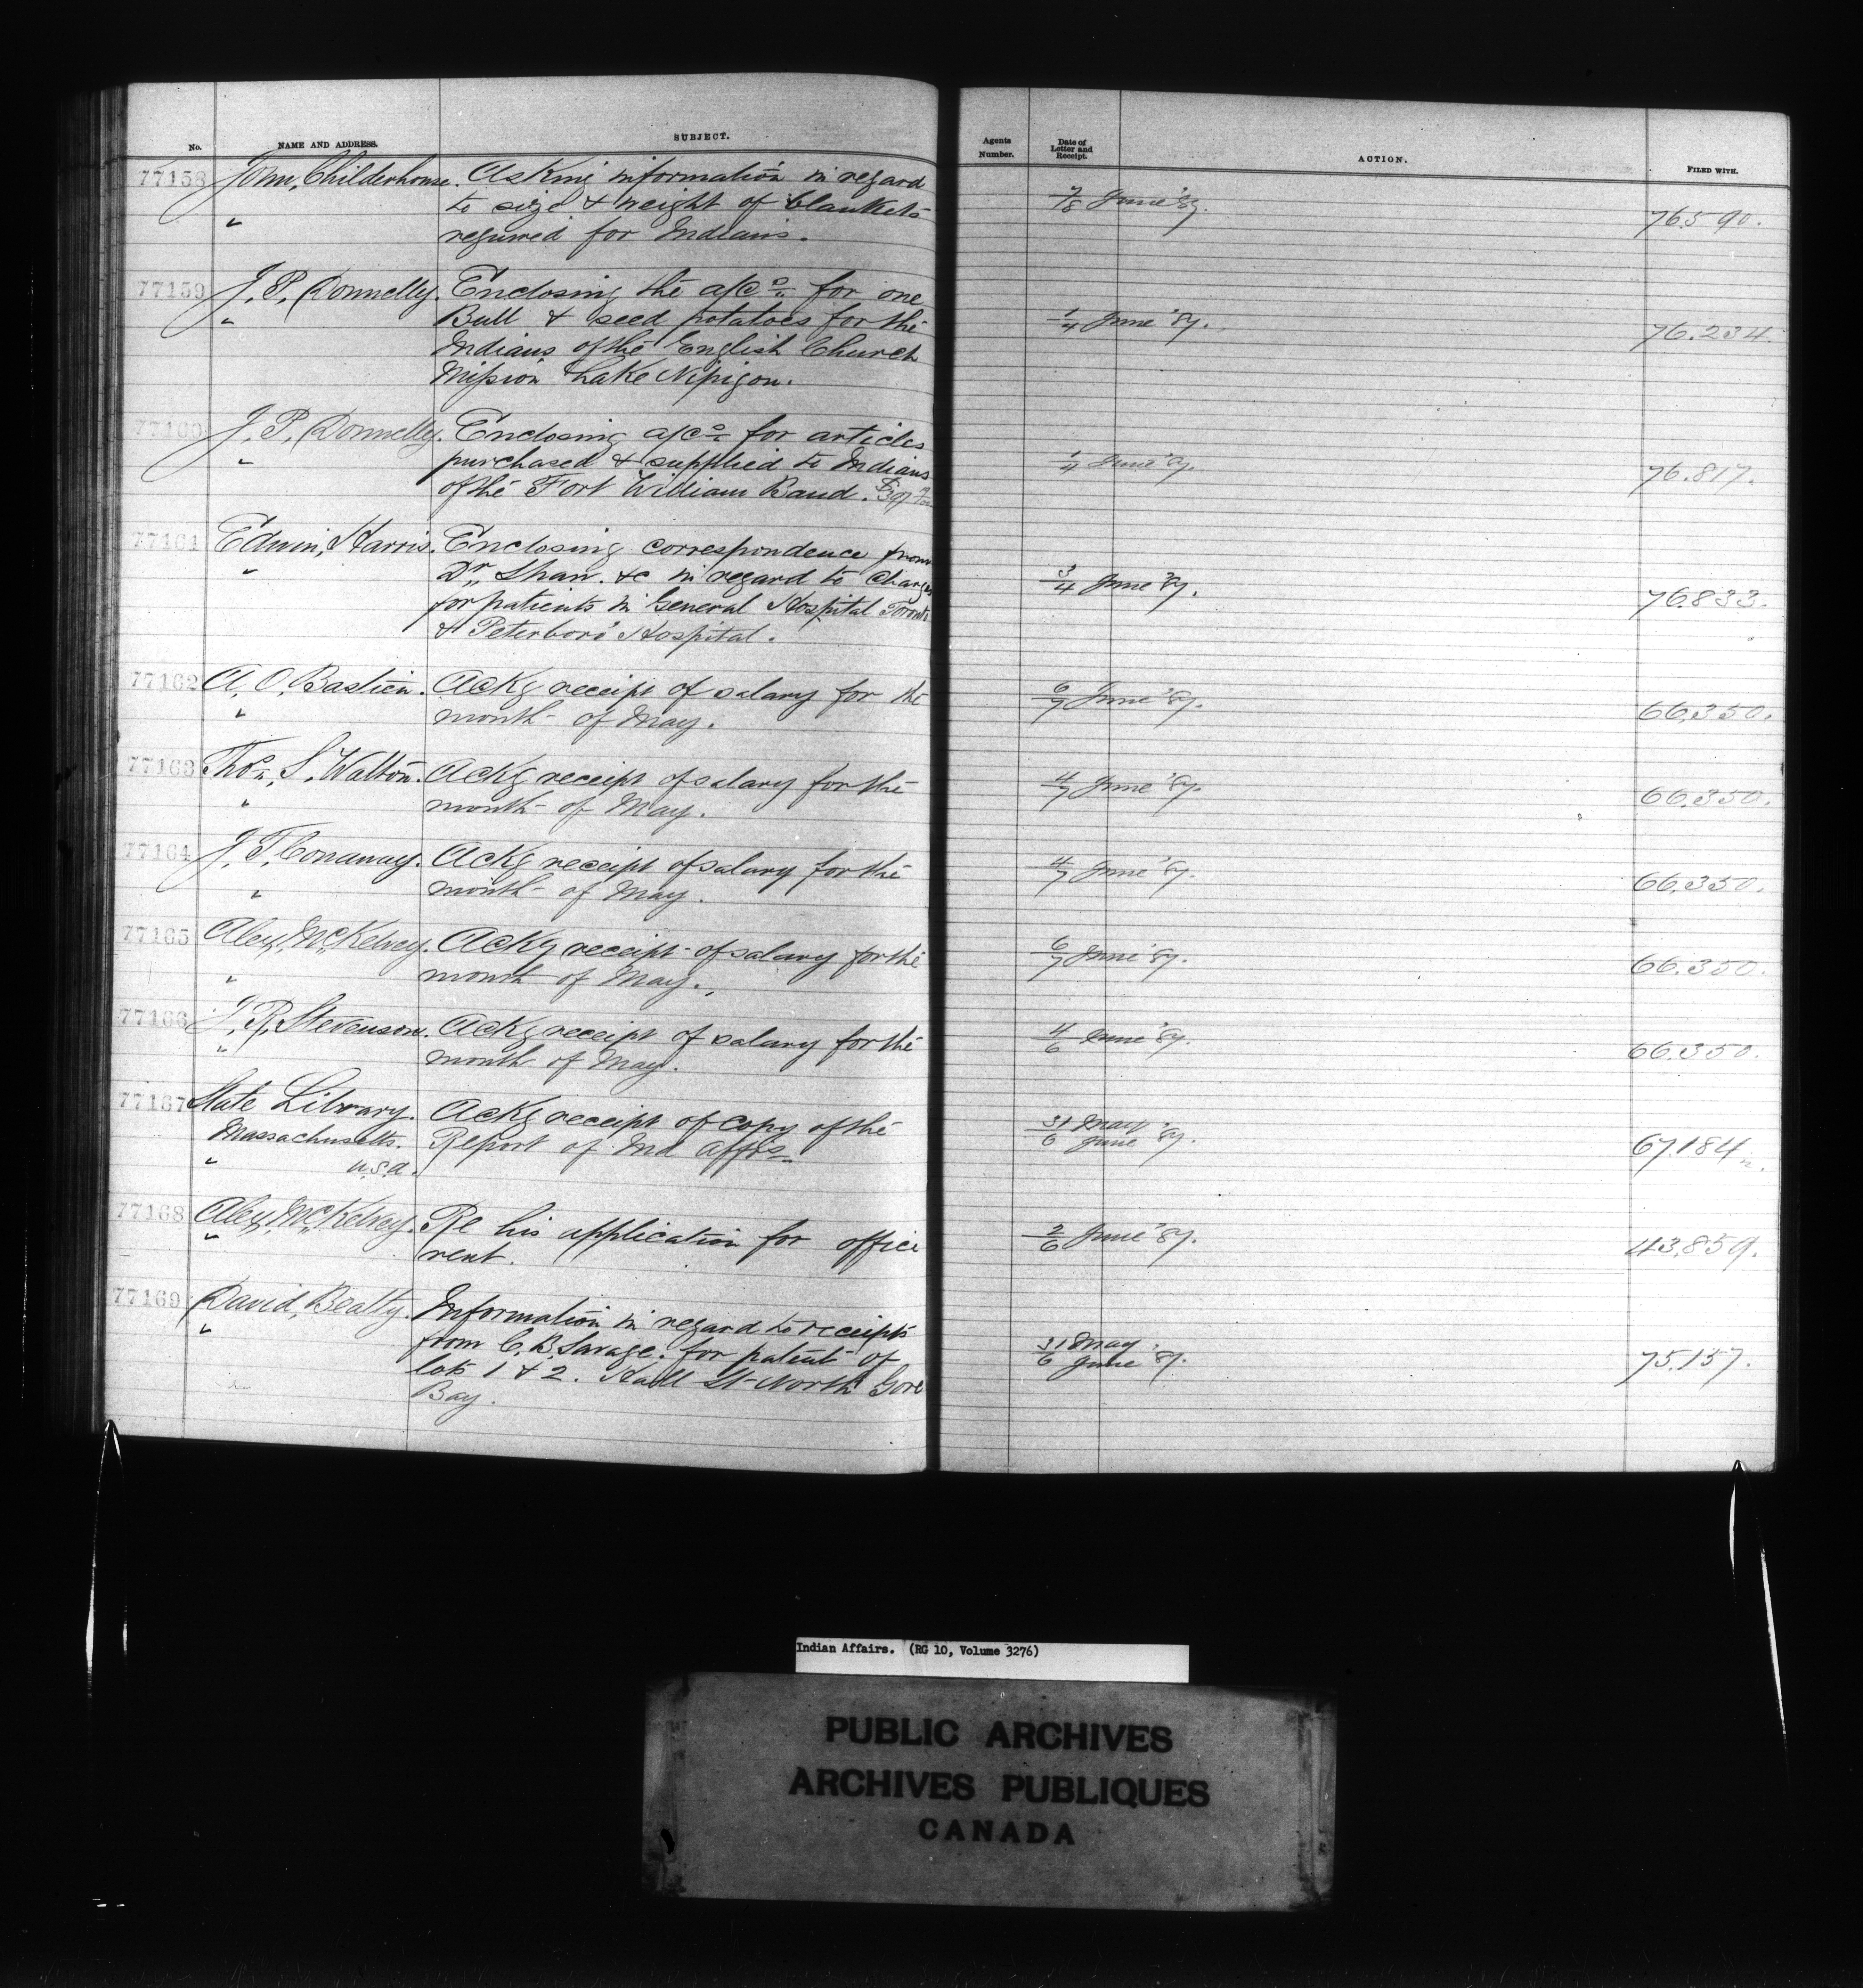 No. NAME AND ADDRESS. SUBJECT. Agents Number. Date of Letter and Receipt. ACTION. FILED WITH.
77158 John, Childerhouse. Asking information in regard
to size & weight of blankets 7/8 June '87. 76.590.
" required for Indians.
77159 J. P. Donnelly. Enclosing the a/cs for one
" Bull & seed potatoes for the 1/4 June '87. 76.234.
Indians of the English Church
Mission Lake Nipigon.
77160 J. P. Donnelly. Enclosing a/cs for articles
" purchased & supplied to Indians 1/4 June '87. 76.817.
of the Fort William Band.
77161 Edwin, Harris. Enclosing correspondence from
" Dr. Shaw. &c in regard to charges 3/4 June '87. 76.833.
for patients in General Hospital Toronto
& Peterboro' Hospital.
77162 A. O. Bastien. Ackg receipt of salary for the 6/7 June '87. 66.350.
" month of May.
77163 Thos. S. Walton. Ackg receipt of salary for the 4/7 June '87. 66.350.
" month of May.
77164 J. T. Conaway. Ackg receipt of salary for the 4/7 June '87. 66.350.
" month of May.
77165 Alex, McKelvey. Ackg receipt of salary for the 6/7 June '87. 66.350.
" month of May.
77166 J. R. Stevenson. Ackg receipt of salary for the 4/6 June '87. 66.350.
" month of May.
77167 State Library. Ackg receipt of copy of the 31 May
Massachusetts. Report of Ind Affrs 6 June '87. 67.184
" U.S.A.
77168 Alex, McKelvey. Re his application for office 2/6 June '87. 43.859.
" rent.
77169 David, Beatty. Information in regard to receipts
" from C. B. Savage. for patent of 31 May 75.157.
lots 1 & 2. Hall St North Gore 6 June '87.
Bay.
Indian Affairs. (RG 10, Volume 3276)
PUBLIC ARCHIVES
ARCHIVES PUBLIQUES
CANADA